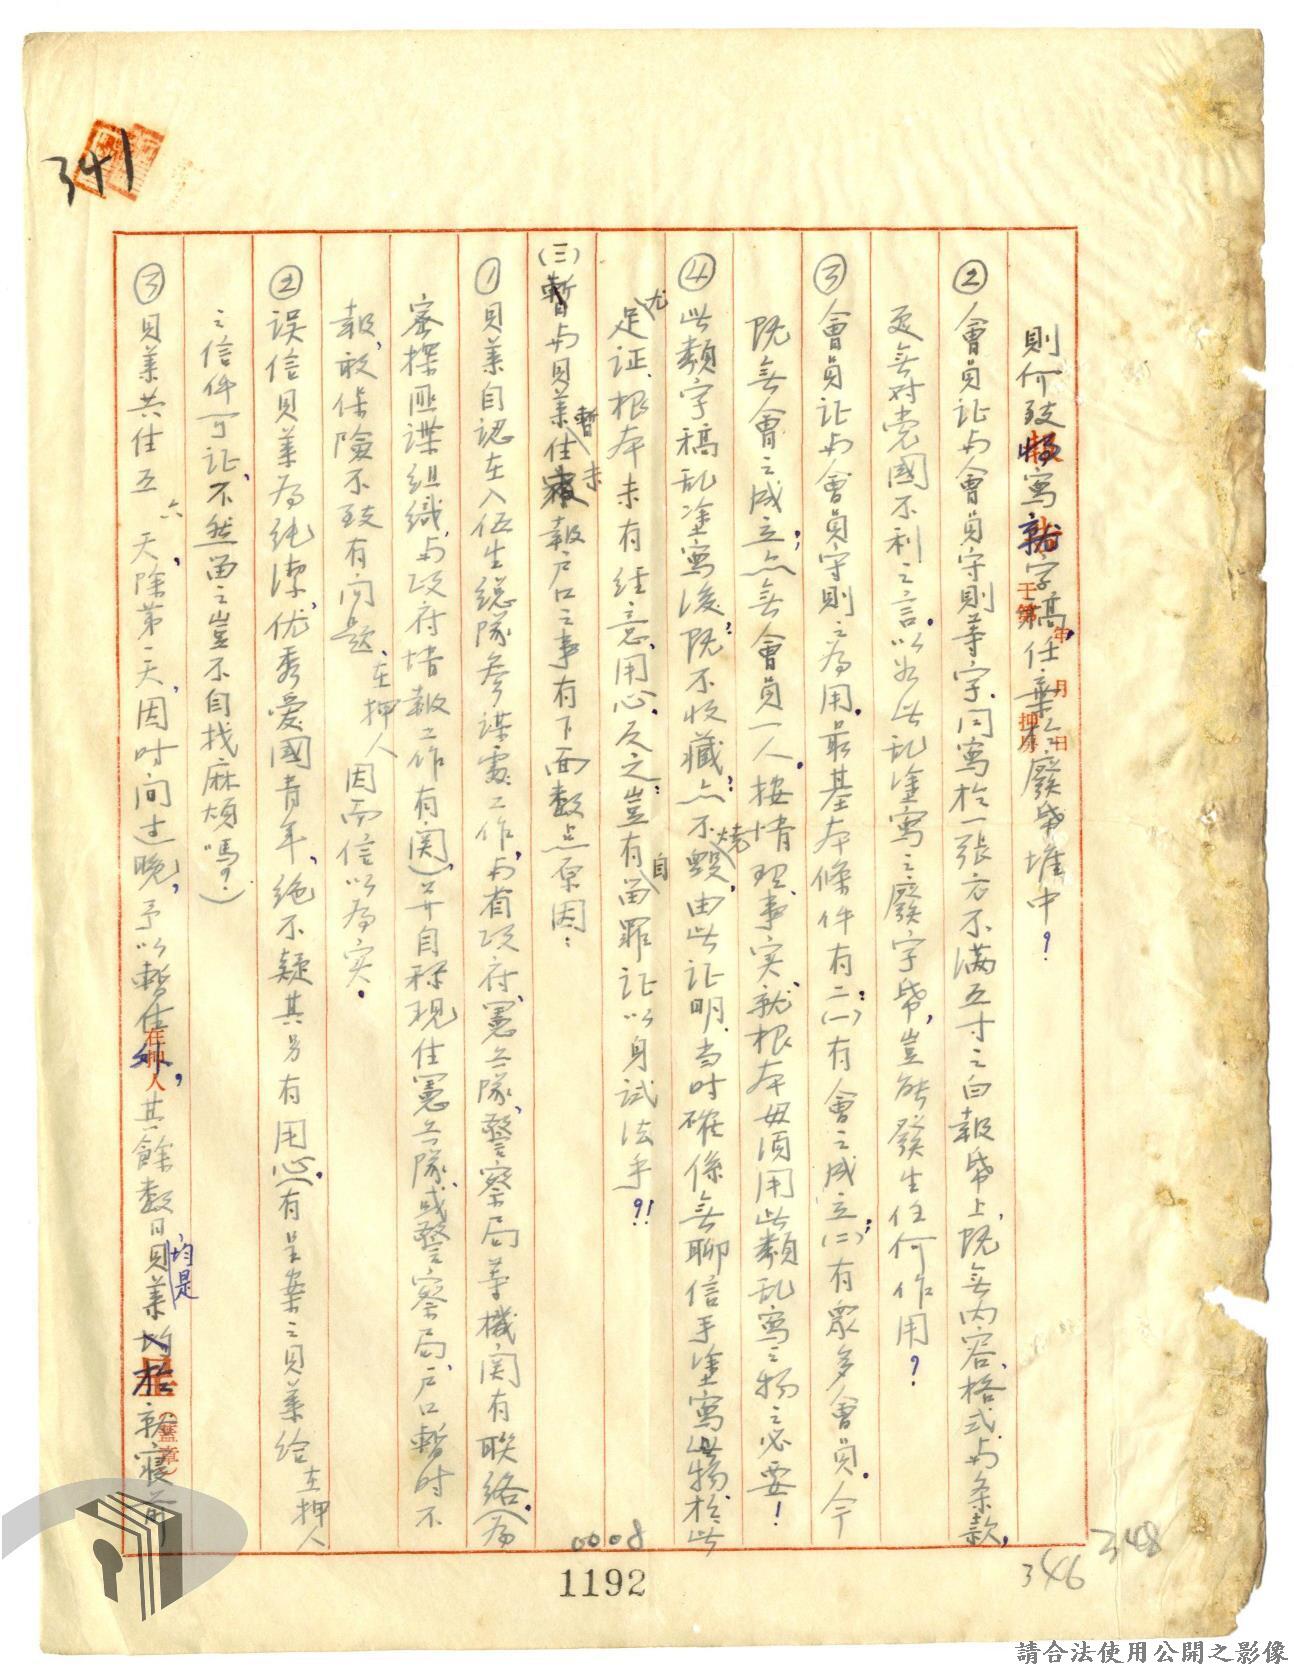 341
則何致將寫就字稿任棄於廢紙堆中？
②會員証与會員守則等字，同寫於一張方不滿五寸之白報紙上，既無內容、格式与条款，
更無对党國不利之言，以如此乱塗寫之廢字紙，豈能發生任何作用？
③會員証与會員守則之為用，最基本條件有二：(一)有會之成立；(二)有眾多會員。今
既無會之成立；亦無會員一人。按情理、事实，就根本毋須用此類乱寫之物之必要！
④此類字稿乱塗寫後，既不收藏；亦不燒毀，由此証明，当时確係無聊信手塗寫此物，於此
尤足証，根本未有经意、用心。反之，豈有自留罪証以身試法乎？！
(三)与貝葉暫住未報户口之事有下面數点原因：
①貝葉自認在入伍生總隊參謀處工作，与省政府、憲兵隊、警察局等機関有联络(為
密探匪諜組織，与政府情報工作有関)并自称現住憲兵隊、或警察局，户口暫时不
報，敢保險不致有问题，在押人因而信以為实。
②误信貝葉為純潔、优秀愛國青年，絶不疑其另有用心(有呈案之貝葉给在押人
之信件可证，不然留之豈不自找麻煩嗎？)
③貝葉共住五六天，除第一天，因时间过晚，予以暫住外，其餘數日貝葉均是於就寢前
年 月 日
在押人
(蓋章)
0008
1192
346
348
請合法使用公開之影像